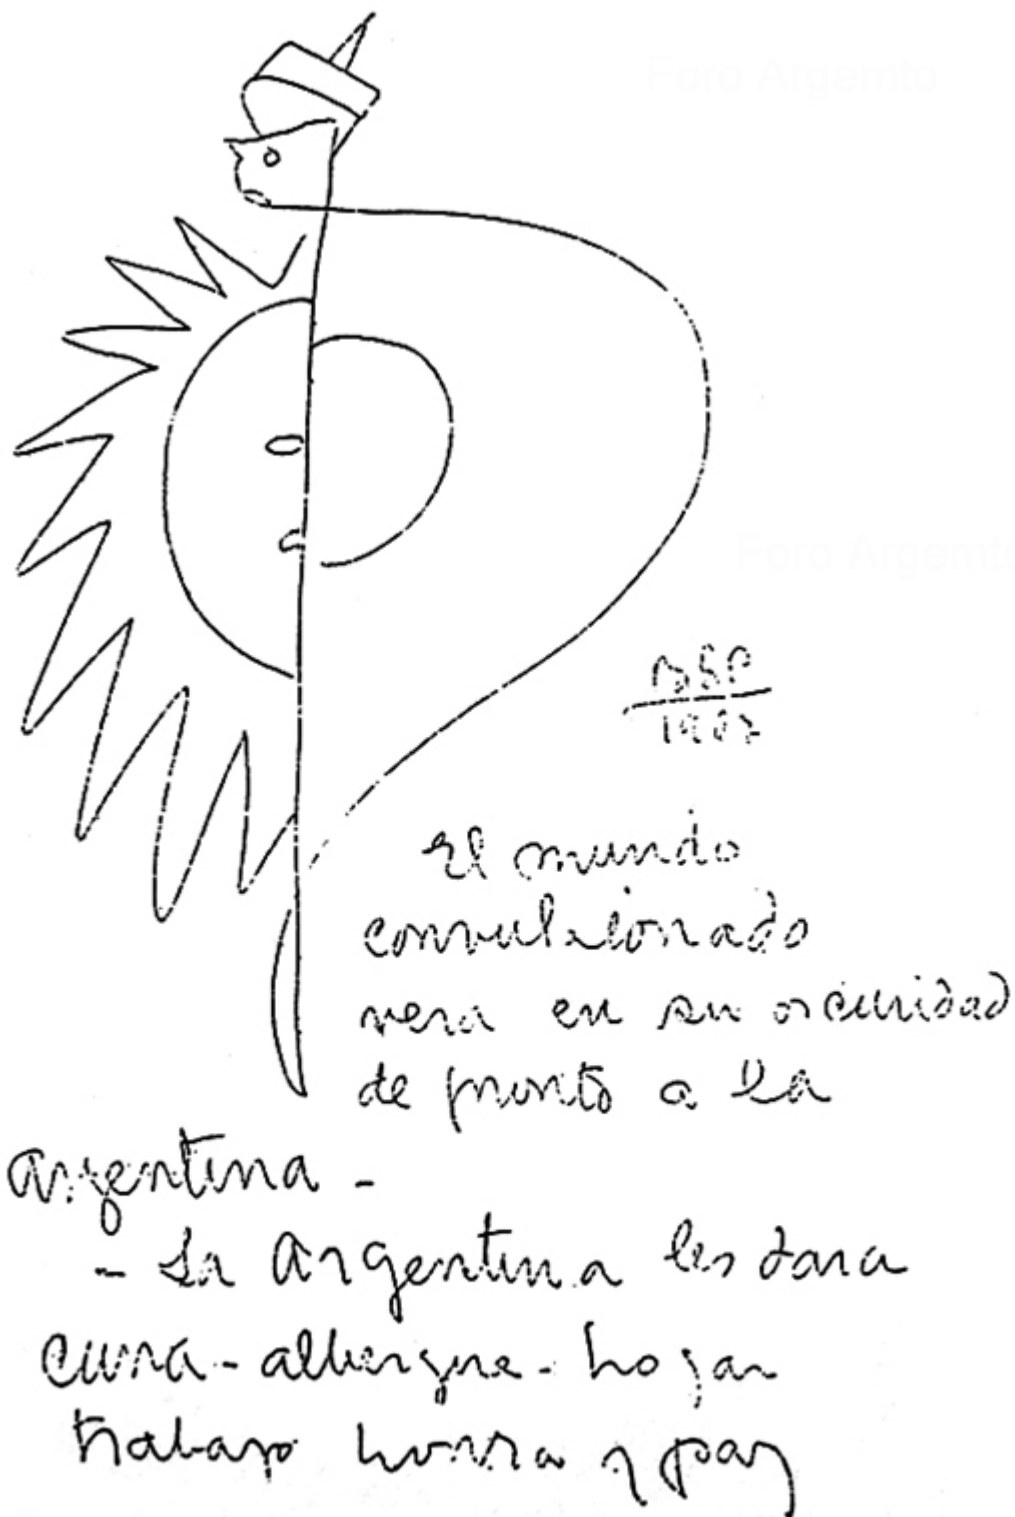 Foro Argemto
Foro Argemto
BSP
El mundo
convulsionado
vera en su oscuridad
de pronto a la
argentina -
- La Argentina les dara
cuna - albergue - hogar
trabajo honra y paz